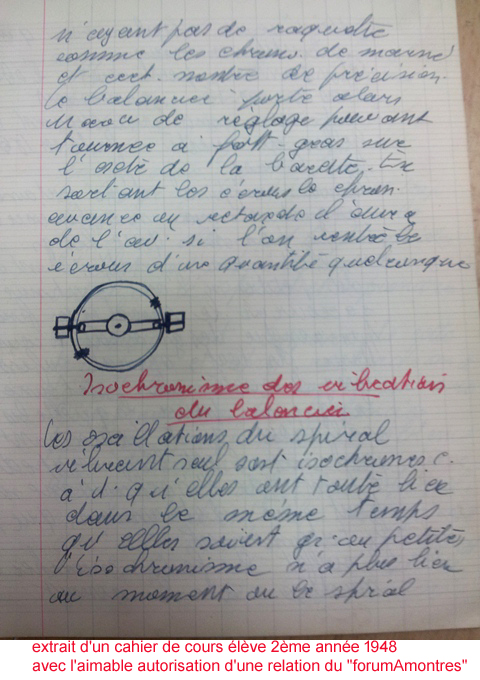 n'ayant pas de raquette
comme les chrono. de marine
et cert. montre de précision.
le balancier porte alors
de réglage pouvant
tourner à frott. gras sur
l'axe de la barette. En
sortant les écrous le chron.
avance ou retarde il aura
de l'av. si l'on rentre le
écrous d'une quantité quelconque
Isochronisme des vibration
du balancier
Les oscillations du spiral
vibrant seul sont isochrones c.
à d. qu'elles ont toute lieu
dans le même temps
qu'elles soient gr. ou petites
l'isochronisme n'a plus lieu
au moment ou le spiral
extrait d'un cahier de cours élève 2ème année 1948
avec l'aimable autorisation d'une relation du "forumAmontres"